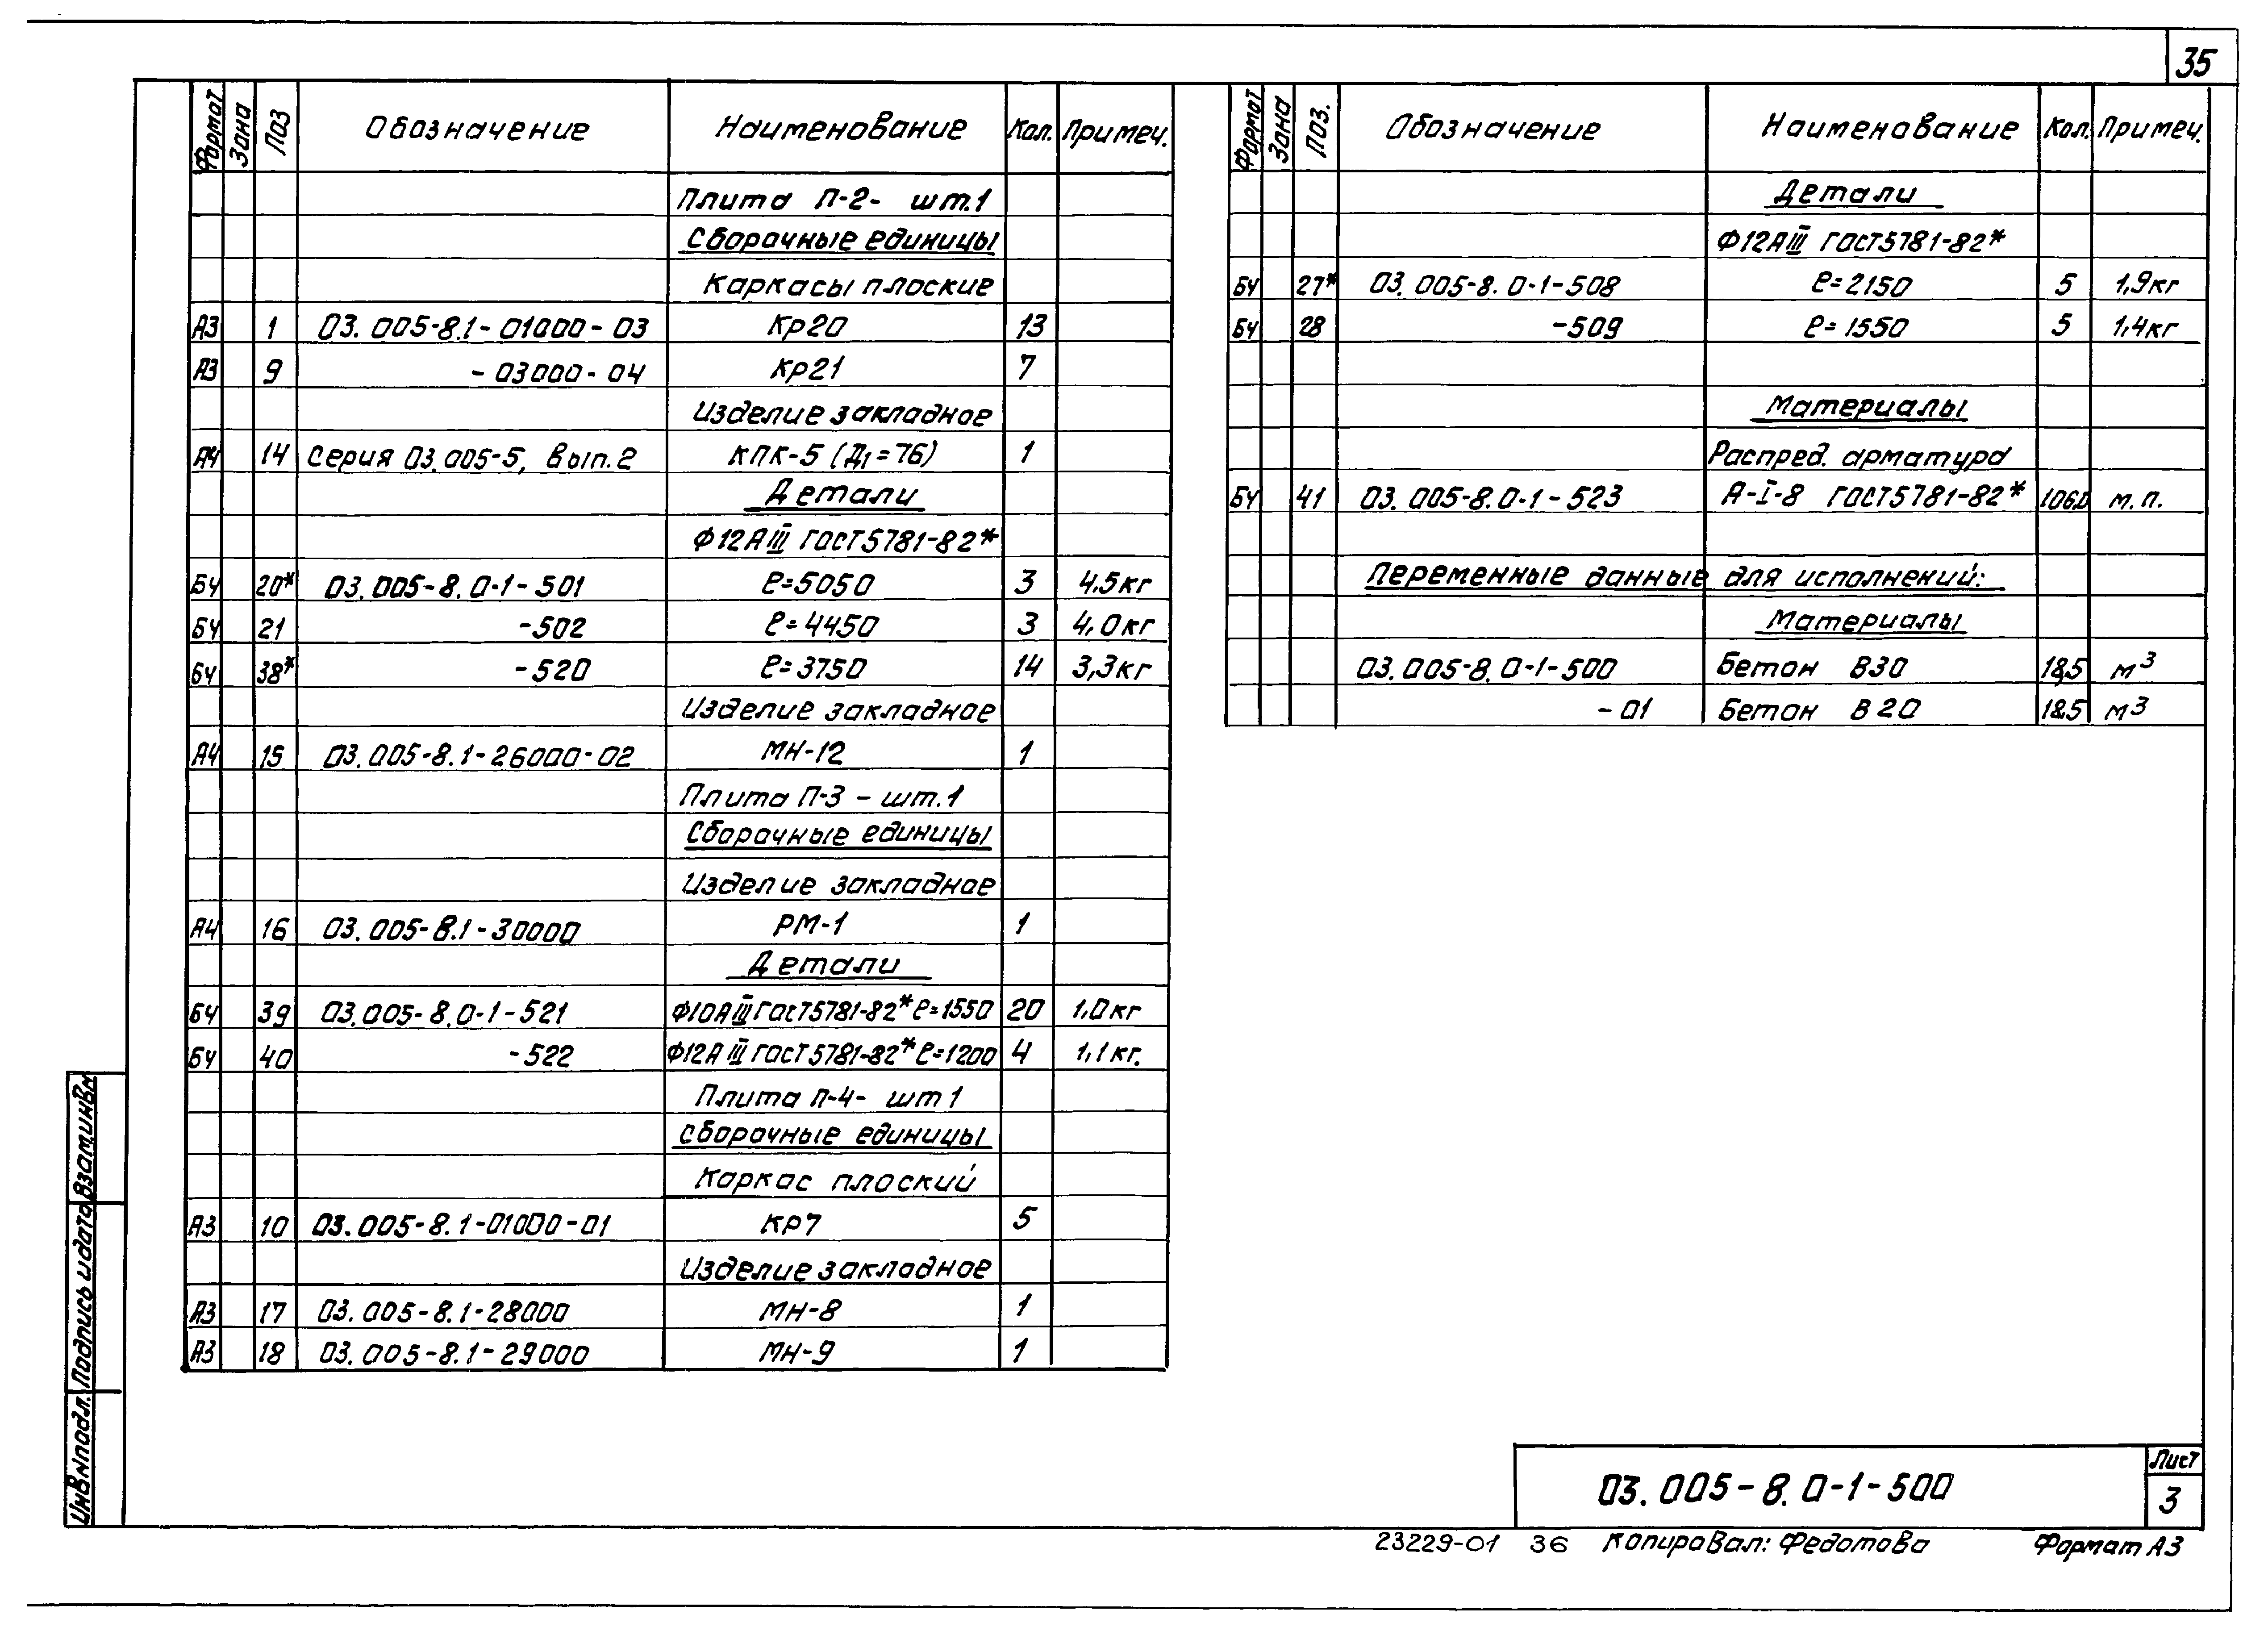 35
Формат Зона Поз Обозначение Наименование Кол. Примеч.
Плита П-2- шт.1
Сборочные единицы
Каркасы плоские
А3 1 03.005-8.1-01000-03 Кр20 13
А3 9 -03000-04 Кр21 7
Изделие закладное
А4 14 Серия 03.005-5, Вып.2 КПК-5 (Д1=76) 1
Детали
Ф12АIII ГОСТ5781-82*
БЧ 20* 03.005-8.0-1-501 ℓ=5050 3 4,5кг
БЧ 21 -502 ℓ=4450 3 4,0кг
БЧ 38* -520 ℓ=3750 14 3,3кг
Изделие закладное
А4 15 03.005-8.1-26000-02 МН-12 1
Плита П-3 - шт.1
Сборочные единицы
Изделие закладное
А4 16 03.005-8.1-30000 РМ-1 1
Детали
БЧ 39 03.005-8.0-1-521 Ф10АIII ГОСТ5781-82* ℓ=1550 20 1,0кг
БЧ 40 -522 Ф12АIII ГОСТ5781-82* ℓ=1200 4 1,1кг.
Плита П-4- шт1
Сборочные единицы
Каркас плоский
А3 10 03.005-8.1-01000-01 КР7 5
Изделие закладное
А3 17 03.005-8.1-28000 МН-8 1
А3 18 03.005-8.1-29000 МН-9 1
Формат Зона Поз. Обозначение Наименование Кол. Примеч.
Детали
Ф12АIII ГОСТ5781-82*
БЧ 27* 03.005-8.0-1-508 ℓ=2150 5 1,9кг
БЧ 28 -509 ℓ=1550 5 1,4кг
Материалы
Распред. арматура
БЧ 41 03.005-8.0-1-523 А-I-8 ГОСТ5781-82* 106,0 м.п.
Переменные данные для исполнений:
Материалы
03.005-8.0-1-500 Бетон В30 18,5 м3
-01 Бетон В20 18,5 м3
Взам.инв№
Подпись и дата
Инв№подл.
03.005-8.0-1-500
Лист
3
23229-01 36 Копировал: Федотова Формат А3